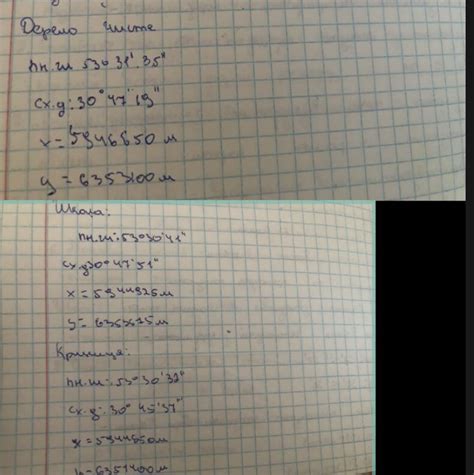 Дерело Чисте
пн.ш 53° 31' 35"
сх.д: 30° 47' 19"
x = 5946650 м
y = 6353100 м
Школа:
пн.ш: 53°30'41"
сх.д 30° 47'51"
x = 5944925 м
y =
Криниця:
пн.ш: 53° 30' 32"
сх.д: 30° 45'37"
x = 5944650 м
y = 6351400 м